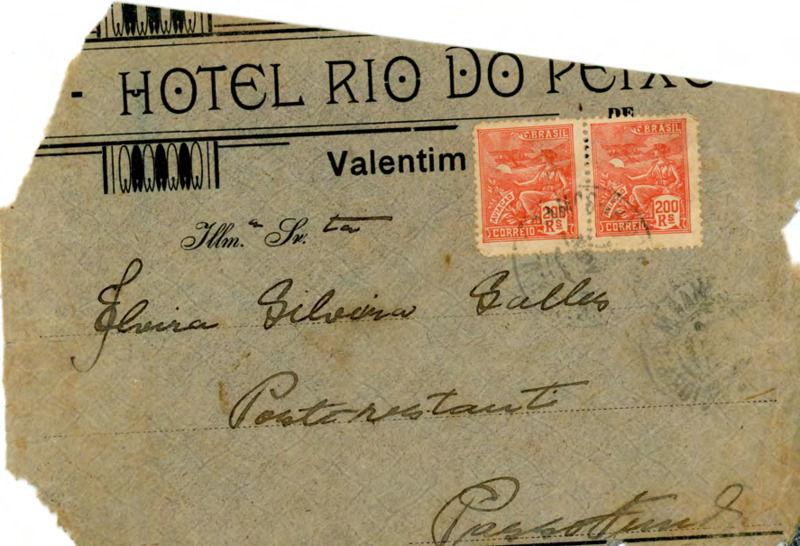 - HOTEL RIO DO PEIXO
DE
Valentim
BRASIL
BRASIL
AVIAÇÃO
AVIAÇÃO
200 Rs
200 Rs
CORREIO
CORREIO
Illm.ª Sr.ta
Elvira Silveira Salles
Posterestante
Passo Fundo